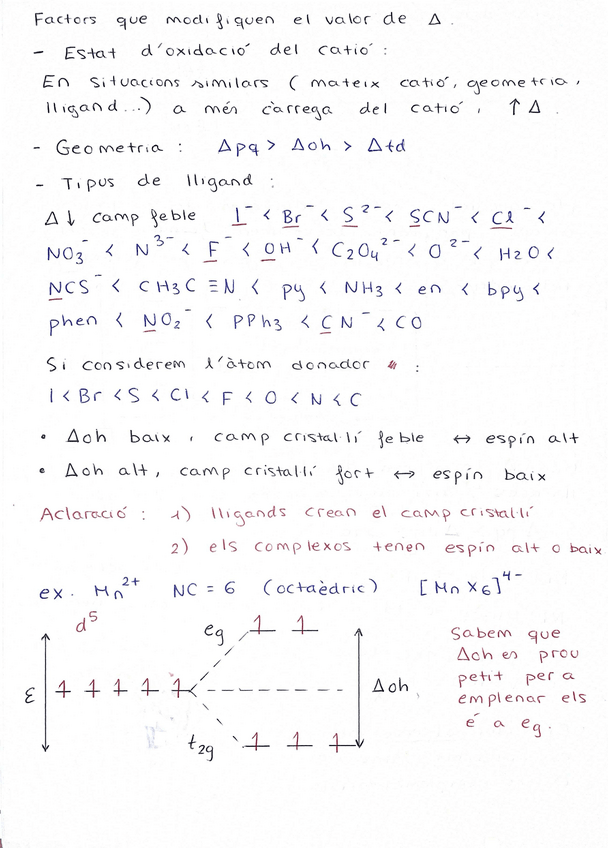 Factors que modifiquen el valor de Δ.
- Estat d'oxidació del catió:
En situacions similars (mateix catió, geometria,
lligand...) a més càrrega del catió, ↑Δ.
- Geometria: Δpq > Δoh > Δtd
- Tipus de lligand:
Δ↓ camp feble I⁻ < Br⁻ < S²⁻ < SCN⁻ < Cl⁻ <
NO₃⁻ < N³⁻ < F⁻ < OH⁻ < C₂O₄²⁻ < O²⁻ < H₂O <
NCS⁻ < CH₃C≡N < py < NH₃ < en < bpy <
phen < NO₂⁻ < PPh₃ < CN⁻ < CO
Si considerem l'àtom donador :
I < Br < S < Cl < F < O < N < C
• Δoh baix, camp cristal·lí feble ↔ espín alt
• Δoh alt, camp cristal·lí fort ↔ espín baix
Aclaració: 1) lligands crean el camp cristal·lí
2) els complexos tenen espín alt o baix
ex. Mn²⁺ NC = 6 (octaèdric) [MnX₆]⁴⁻
d⁵
eg
Sabem que
Δoh es prou
petit per a
emplenar els
é a eg.
ε
Δoh
t₂g